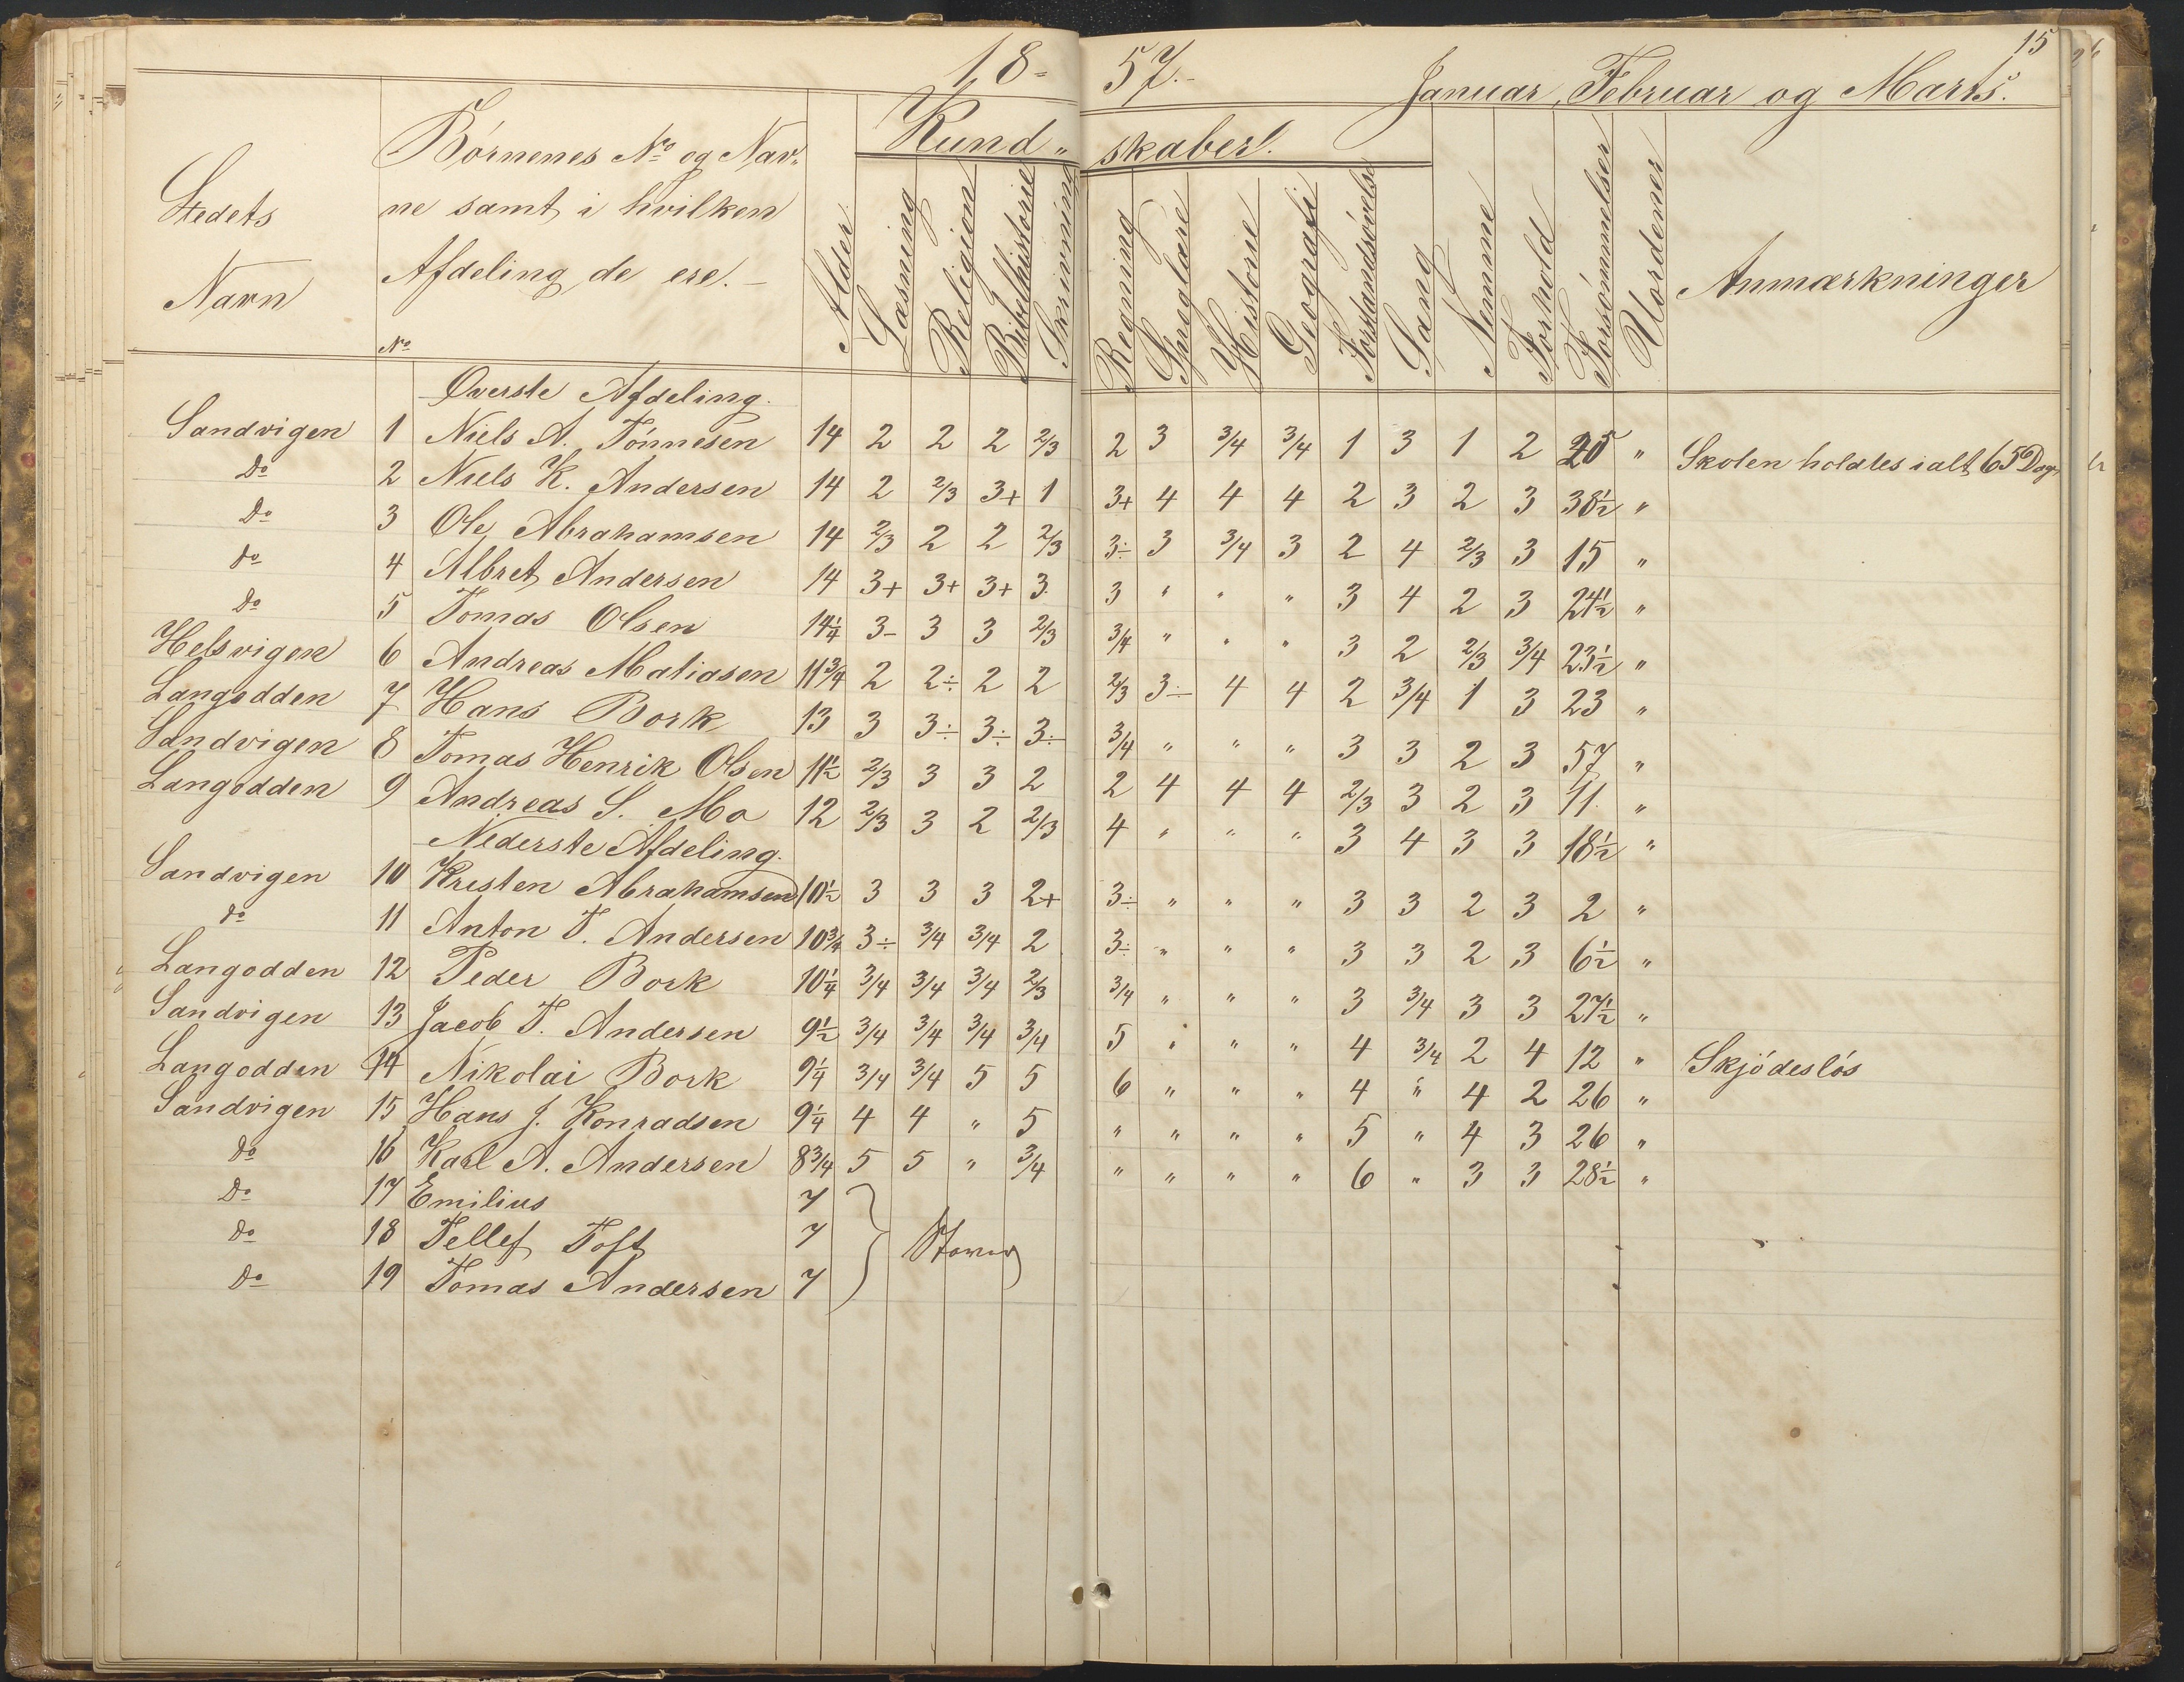 18=57.- Januar, Februar og Marts. 15
Kund„skaber.
Stedets Navn
Børnenes No og Nav„
ne samt i hvilken
Afdeling de ere. –
No
Alder Læsning Religion Bibelhistorie Skrivning Regning Sproglære Historie Geografi Forstandsøvelse Sang Nemme Forhold Forsømmelser Uordener Anmærkninger
Øverste Afdeling.
Sandvigen 1 Niels A. Tønnesen 14 2 2 2 2/3 2 3 3/4 3/4 1 3 1 2 „ Skolen holdtes ialt 65 Dage
Do 2 Niels K. Andersen 14 2 2/3 3+ 1 3+ 4 4 4 2 3 2 3 38½ „
Do 3 Ole Abrahamsen 14 2/3 2 2 2/3 3÷ 3 3/4 3 2 4 2/3 3 15 „
do 4 Albret Andersen 14 3+ 3+ 3+ 3. 3 „ „ „ 3 4 2 3 24½ „
Do 5 Tomas Olsen 14¼ 3- 3 3 2/3 3/4 „ „ „ 3 2 2/3 3/4 23½ „
Helsvigen 6 Andreas Matiasen 11¾ 2 2÷ 2 2 2/3 3÷ 4 4 2 3/4 1 3 23 „
Langodden 7 Hans Bork 13 3 3÷ 3÷ 3÷ 3/4 „ „ „ 3 3 2 3 57 „
Sandvigen 8 Tomas Henrik Olsen 11½ 2/3 3 3 2 2 4 4 4 2/3 3 2 3 11. „
Langodden 9 Andreas S. Mo 12 2/3 3 2 2/3 4 „ „ „ 3 4 3 3 18½ „
Nederste Afdeling.
Sandvigen 10 Kristen Abrahamsen 10½ 3 3 3 2+ 3÷ „ „ „ 3 3 2 3 2 „
do 11 Anton T. Andersen 10¾ 3÷ 3/4 3/4 2 3÷ „ „ „ 3 3 2 3 6½ „
Langodden 12 Peder Bork 10¼ 3/4 3/4 3/4 2/3 3/4 „ „ „ 3 3/4 3 3 27½ „
Sandvigen 13 Jacob T. Andersen 9½ 3/4 3/4 3/4 3/4 5 „ „ „ 4 3/4 2 4 12 „ Skjødesløs
Langodden 14 Nikolai Bork 9¼ 3/4 3/4 5 5 6 „ „ „ 4 „ 4 2 26 „
Sandvigen 15 Hans J. Konradsen 9¼ 4 4 „ 5 „ „ „ „ 5 „ 4 3 26 „
do 16 Karl A. Andersen 8¾ 5 5 „ 3/4 „ „ „ „ 6 „ 3 3 28½ „
Do 17 Emilius 7
Do 18 Tellef Toft 7
Do 19 Tomas Andersen 7